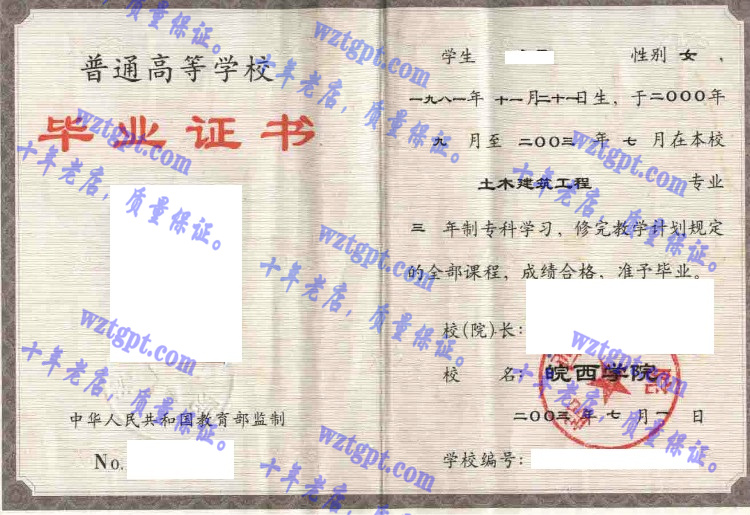 普通高等学校
毕业证书
中华人民共和国教育部监制
No.
学生 性别 女 ，
一九八一年 十一月二十一日生，于二〇〇〇年
九 月至 二〇〇三 年 七 月在本校
土木建筑工程 专业
三 年制专科学习，修完教学计划规定
的全部课程，成绩合格，准予毕业。
校(院)长：
校 名： 皖西学院
二〇〇三 年 七 月 一 日
学校编号：
wztgpt.com
十年老店，质量保证。
wztgpt.com
十年老店，质量保证。
wztgpt.com
十年老店，质量保证。
wztgpt.com
十年老店，质量保证。
wztgpt.com
十年老店，质量保证。
wztgpt.com
十年老店，质量保证。
wztgpt.com
十年老店，
质量保证。